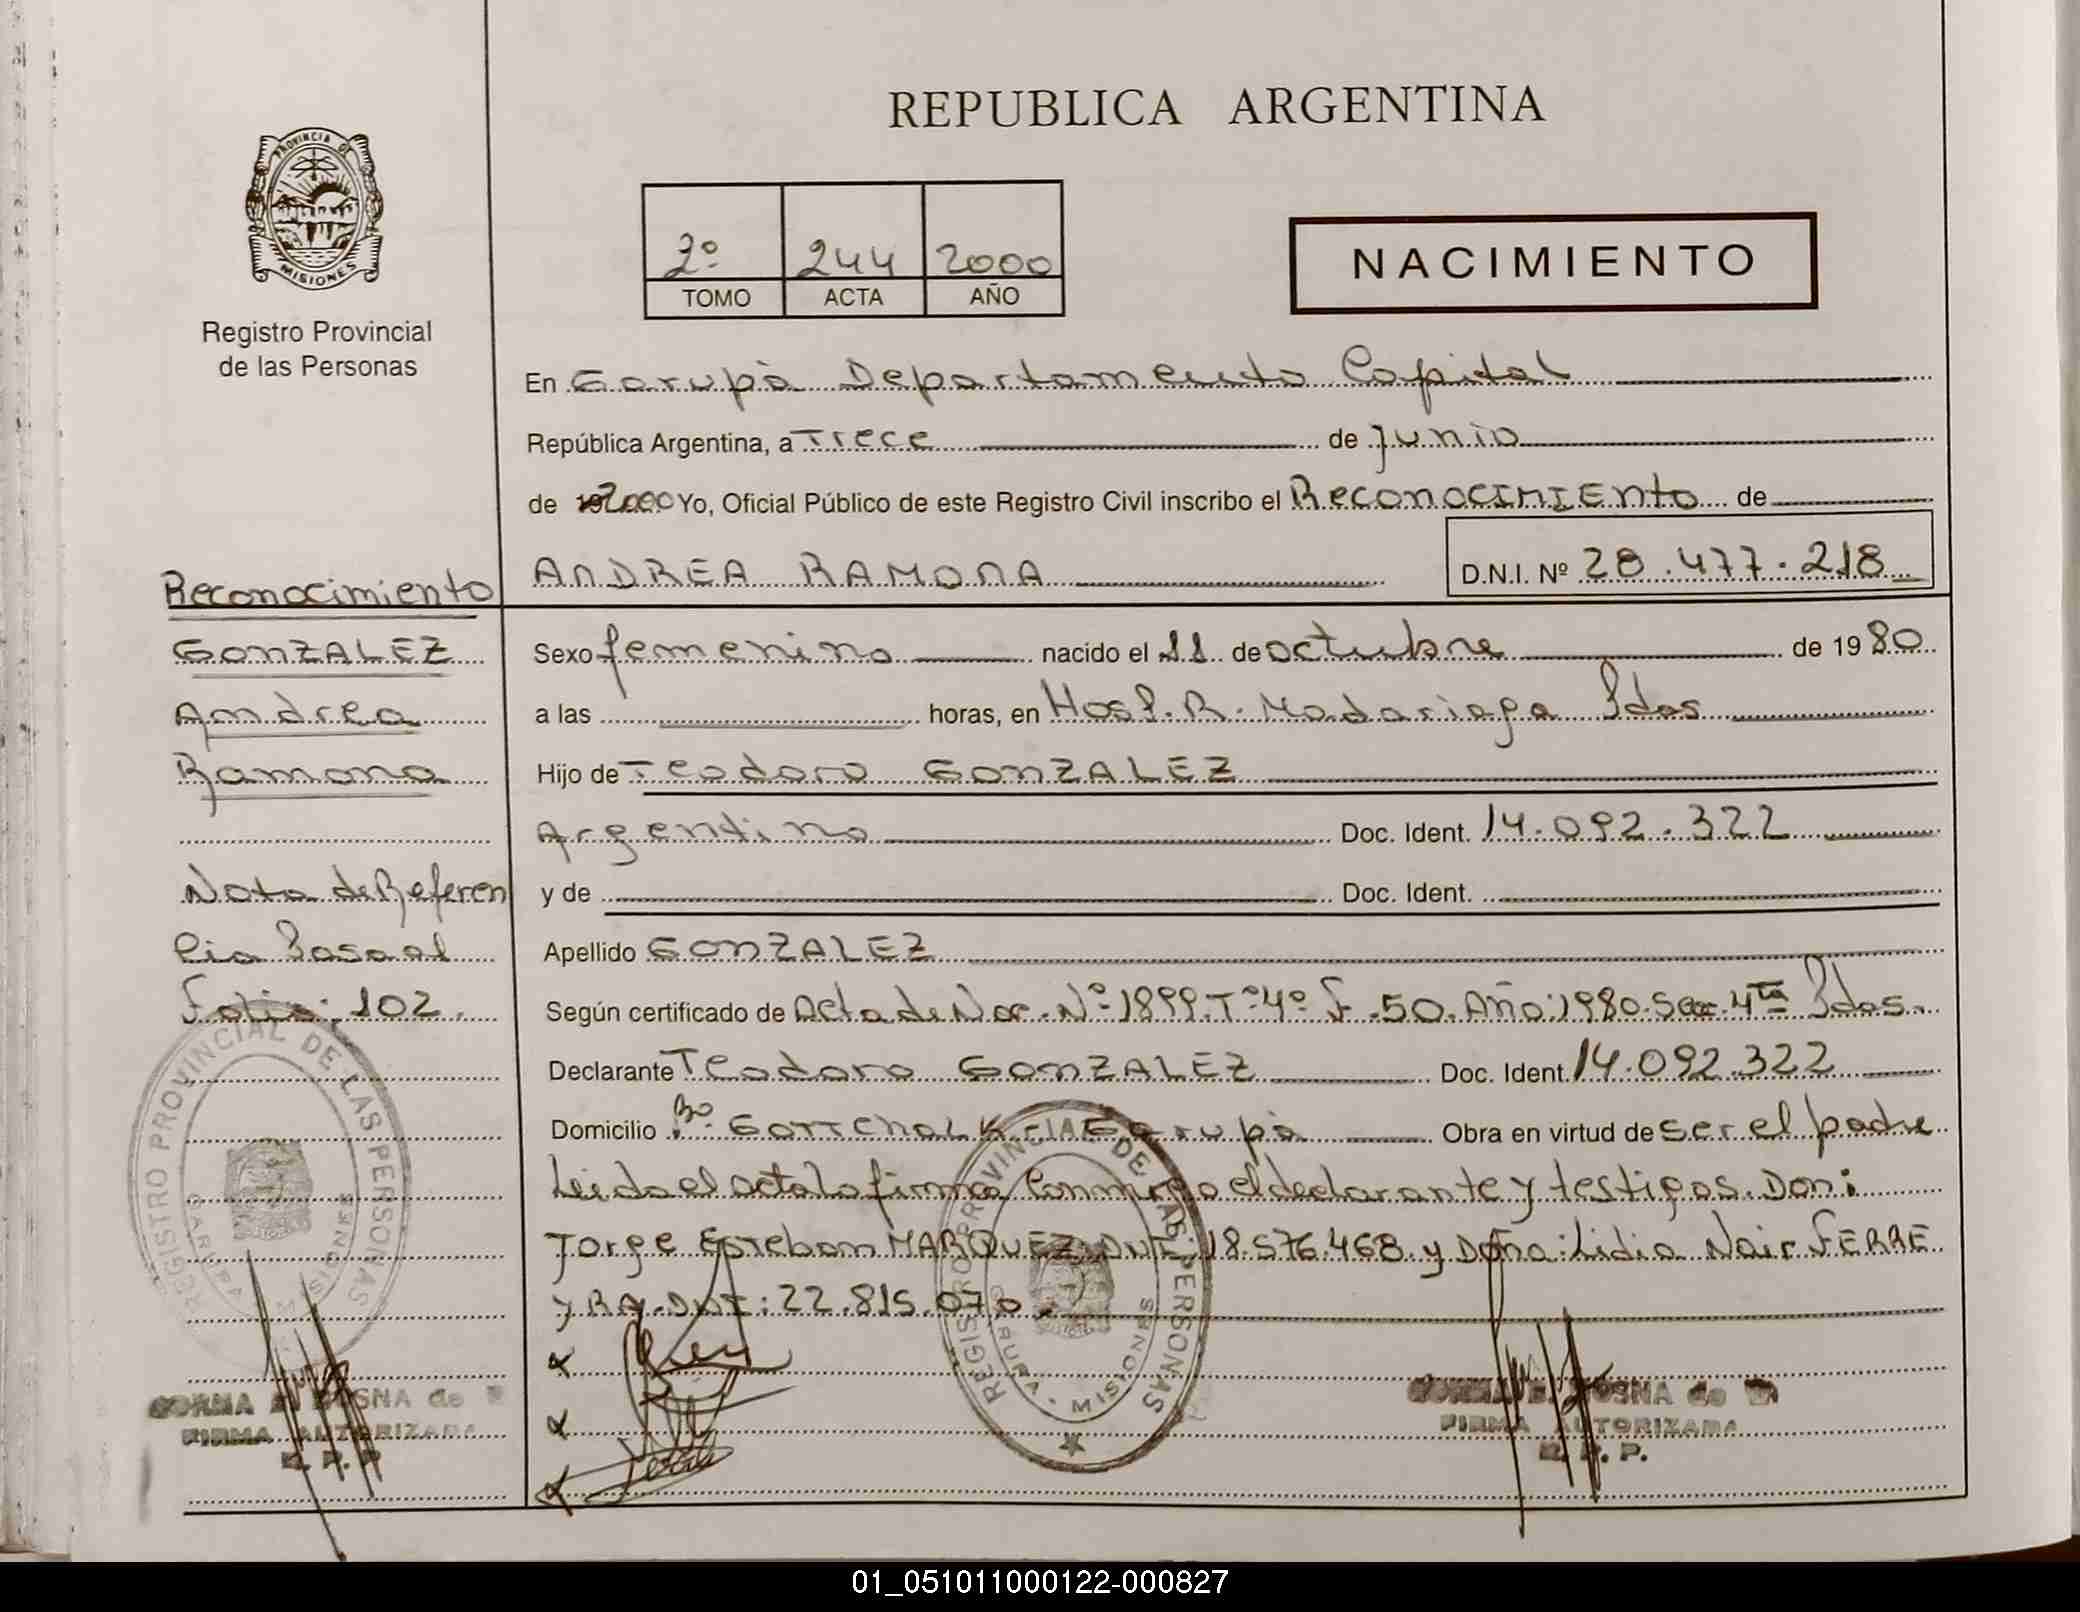 REPUBLICA ARGENTINA
PROVINCIA DE
MISIONES
Registro Provincial
de las Personas
2º 244 2000
TOMO ACTA AÑO
NACIMIENTO
En Garupà Departamento Capital
República Argentina, a Trece de Junio
de 192000 Yo, Oficial Público de este Registro Civil inscribo el Reconocimiento de
ANDREA RAMONA D.N.I. Nº 28.477.218
Reconocimiento
GONZALEZ
Andrea
Ramona
Nota de Referen
cia Pasa al
Folio: 102.
Sexo femenino nacido el 11 de octubre de 1980
a las horas, en Hosp. R. Madariaga Pdas
Hijo de Teodoro GONZALEZ
Argentino Doc. Ident. 14.092.322
y de Doc. Ident.
Apellido GONZALEZ
Según certificado de Acta de Nac. Nº 1899. Tº 4º F. 50. Año: 1980. Secc. 4ta Pdas.
Declarante Teodoro GONZALEZ Doc. Ident. 14.092.322
Domicilio Bº. Gottchalk - Garupà Obra en virtud de ser el padre
Leida el acta la firma conmigo el declarante y testigos. Don:
Jorge Esteban MARQUEZ DNI: 18.576.468 y Doña: Lidia Nair FERRE
YRA. DNI: 22.815.070.
REGISTRO PROVINCIAL DE LAS PERSONAS
GARUPA MISIONES
REGISTRO PROVINCIAL DE LAS PERSONAS
GARUPA - MISIONES
FIRMA AUTORIZADA
R. P. P.
FIRMA AUTORIZADA
R. P. P.
01_051011000122-000827